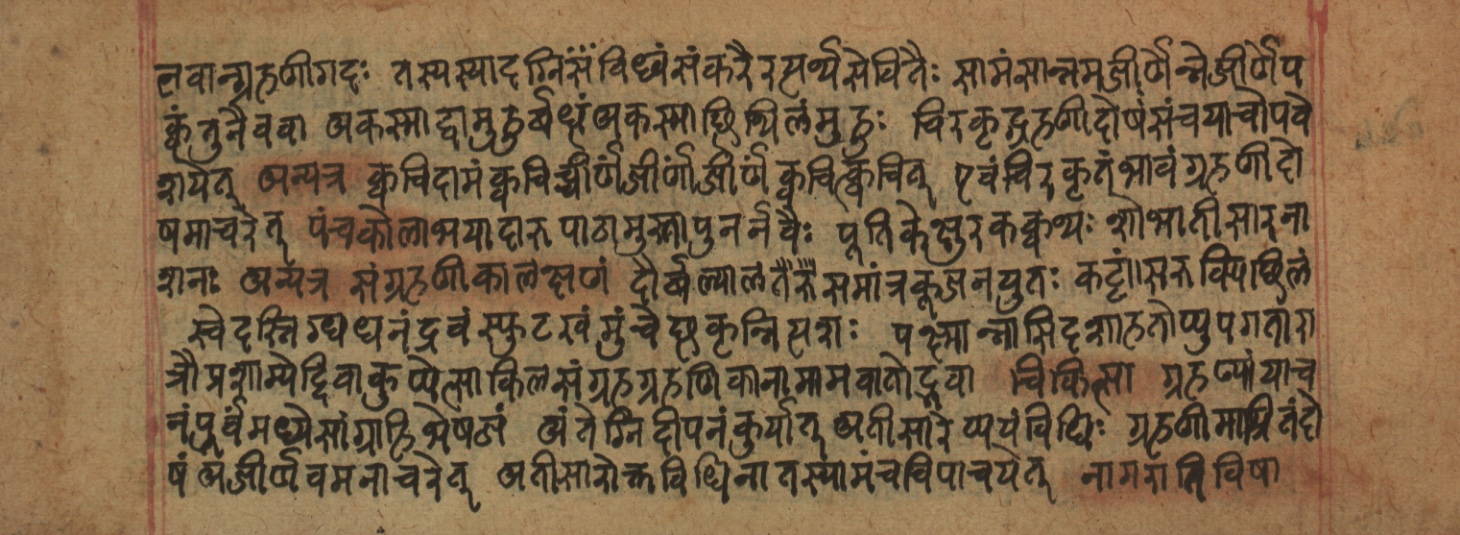 नवान्ग्रहणीगदः तस्यस्यादग्निसंविध्वंसंकरैरत्यर्थसेवितैः सामंसान्नमजीर्णेन्नेजीर्णेप
क्कंतुनैववा अकस्माद्वामुहुर्बध्धंअकस्माछिथिलंमुहुः चिरकृद्ग्रहणीदोषंसंचयाचोपवे
शयेत् अन्यत्र क्वचिदामंक्वचिज्जीर्णंजीर्णाजीर्णंक्वचित्क्वचित् एवंचिरकृतंभावंग्रहणीदो
षमाचरेत् पंचकोलाभयादारुपाठामुस्तापुनर्नवैः पूतिकेक्षुरकक्वथः शोभातीसारना
शनः अन्यत्र संग्रहणीकालक्षणं दौर्बल्यालसमांत्रकूजनयुतः कट्यांसरुक्पिछिलं
स्वेदस्निग्धधनंद्रवंस्फुटरवंमुंचेछकृन्निसराः पश्मान्मासिदशाहतोप्युपगतोरा
त्रौप्रशाम्येद्दिवाकुप्येत्साकिलसंग्रहग्रहणिकानामामवातोद्भवा चिकित्सा ग्रहण्यांपाच
नंपूर्वंमध्येसांग्राहिभेषजं अंतेग्निदीपनंकुर्यात् अतीसारेप्ययंविधिः ग्रहणीमाश्रितंदो
षंअजीर्णवमनाचरेत् अतीसारोक्तविधिनातस्यामंचविपाचयेत् नागरातिविषा